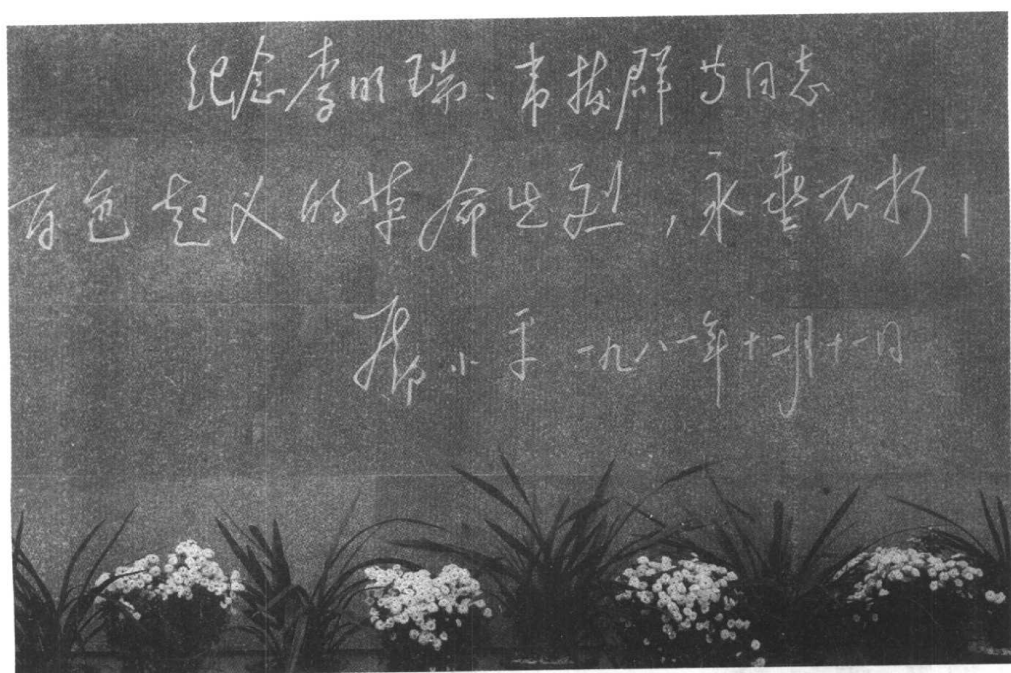 纪念李明瑞、韦拔群等同志
百色起义的革命先烈，永垂不朽！
邓小平 一九八一年十二月十一日